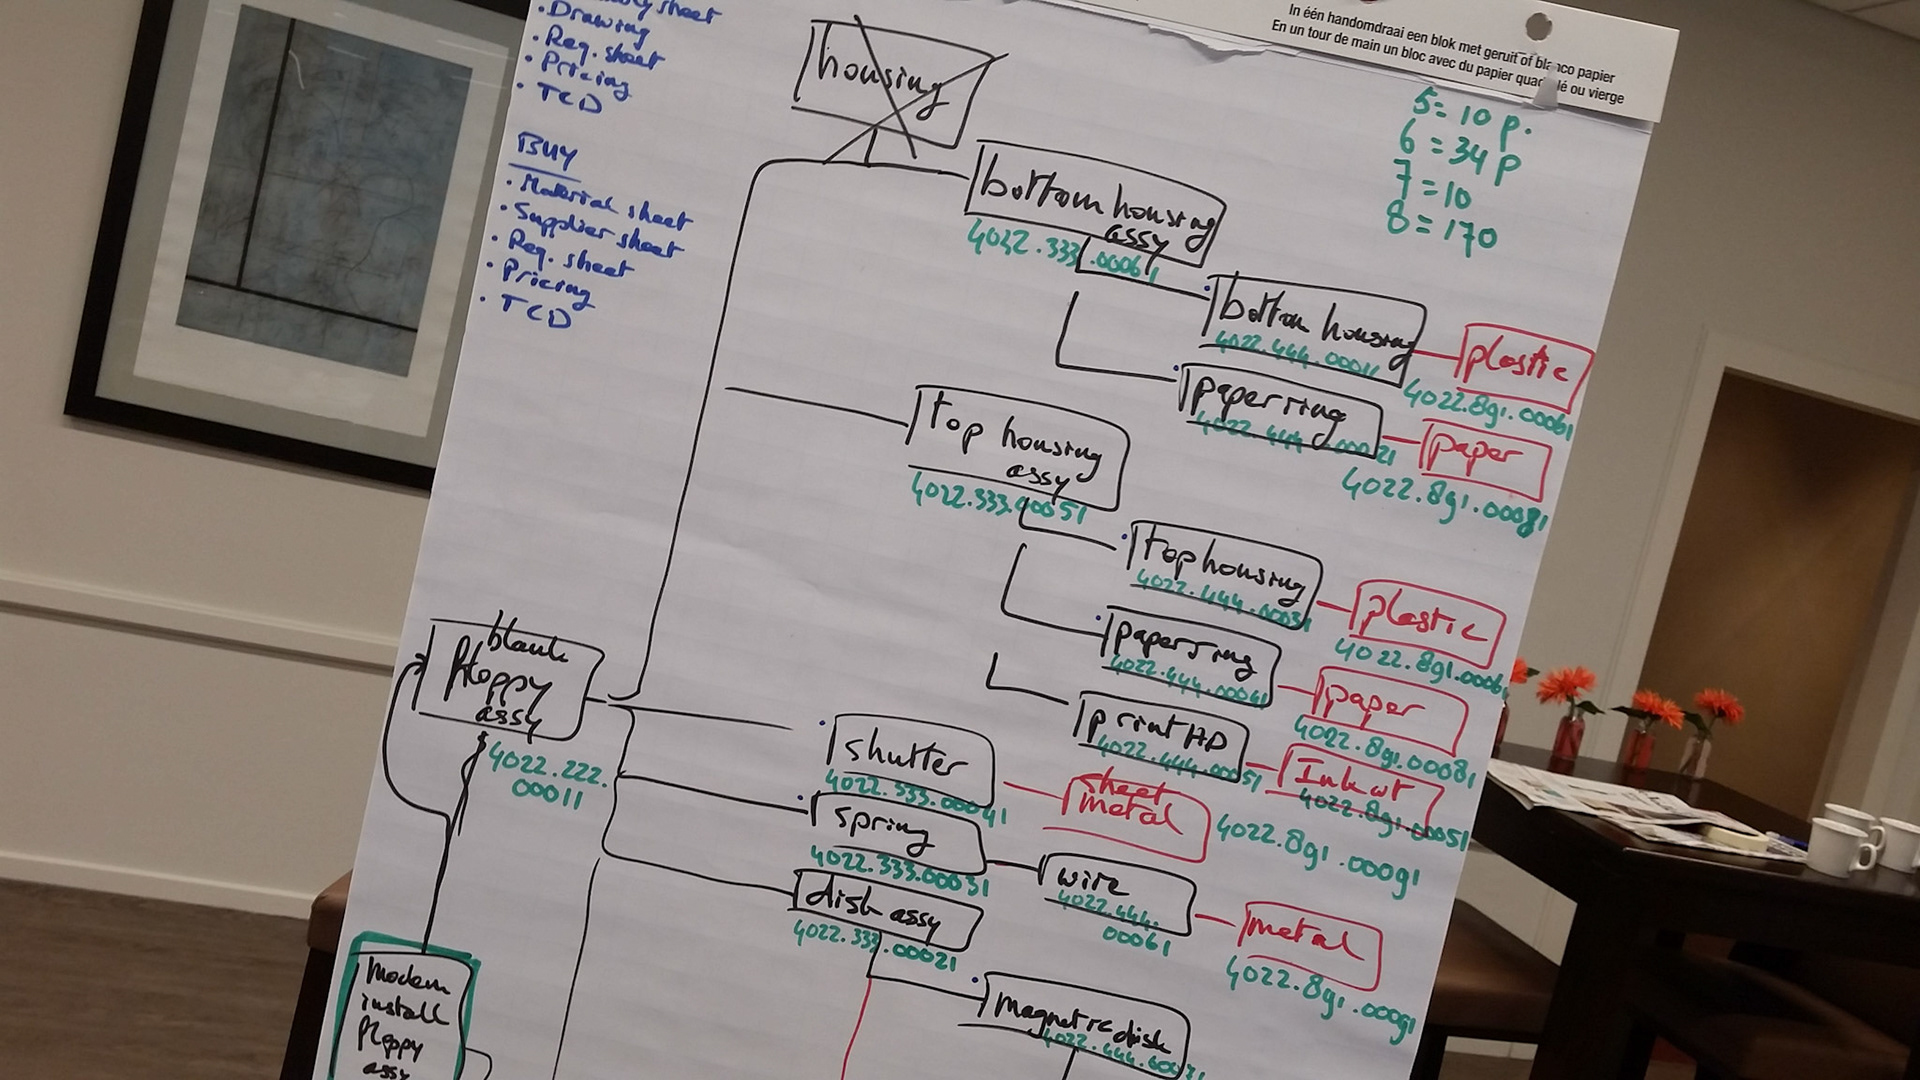 In één handomdraai een blok met geruit of blanco papier
En un tour de main un bloc avec du papier quadrillé ou vierge
sheet
· Drawing
· Req. sheet
· Pricing
· TCD
BUY
· Material sheet
· Supplier sheet
· Req. sheet
· Pricing
· TCD
5 = 10 p.
6 = 34 p
7 = 10
8 = 170
housing
bottom housing
assy
4022.333.00061
bottom housing
4022.444.00011
plastic
4022.891.00061
paper ring
4022.444.00021
paper
4022.891.00081
top housing
assy
4022.333.00051
top housing
4022.444.00031
plastic
4022.891.0006
paper ring
4022.444.00041
paper
4022.891.00081
print HD
4022.444.00051
Inkt
4022.891.00051
blank
floppy
assy
4022.222.
00011
shutter
4022.333.00041
sheet
metal
4022.891.00091
spring
4022.333.00031
wire
4022.444.
00061
metal
4022.891.00091
disk assy
4022.333.00021
magnetic disk
4022.444.00071
Modem
install
floppy
assy